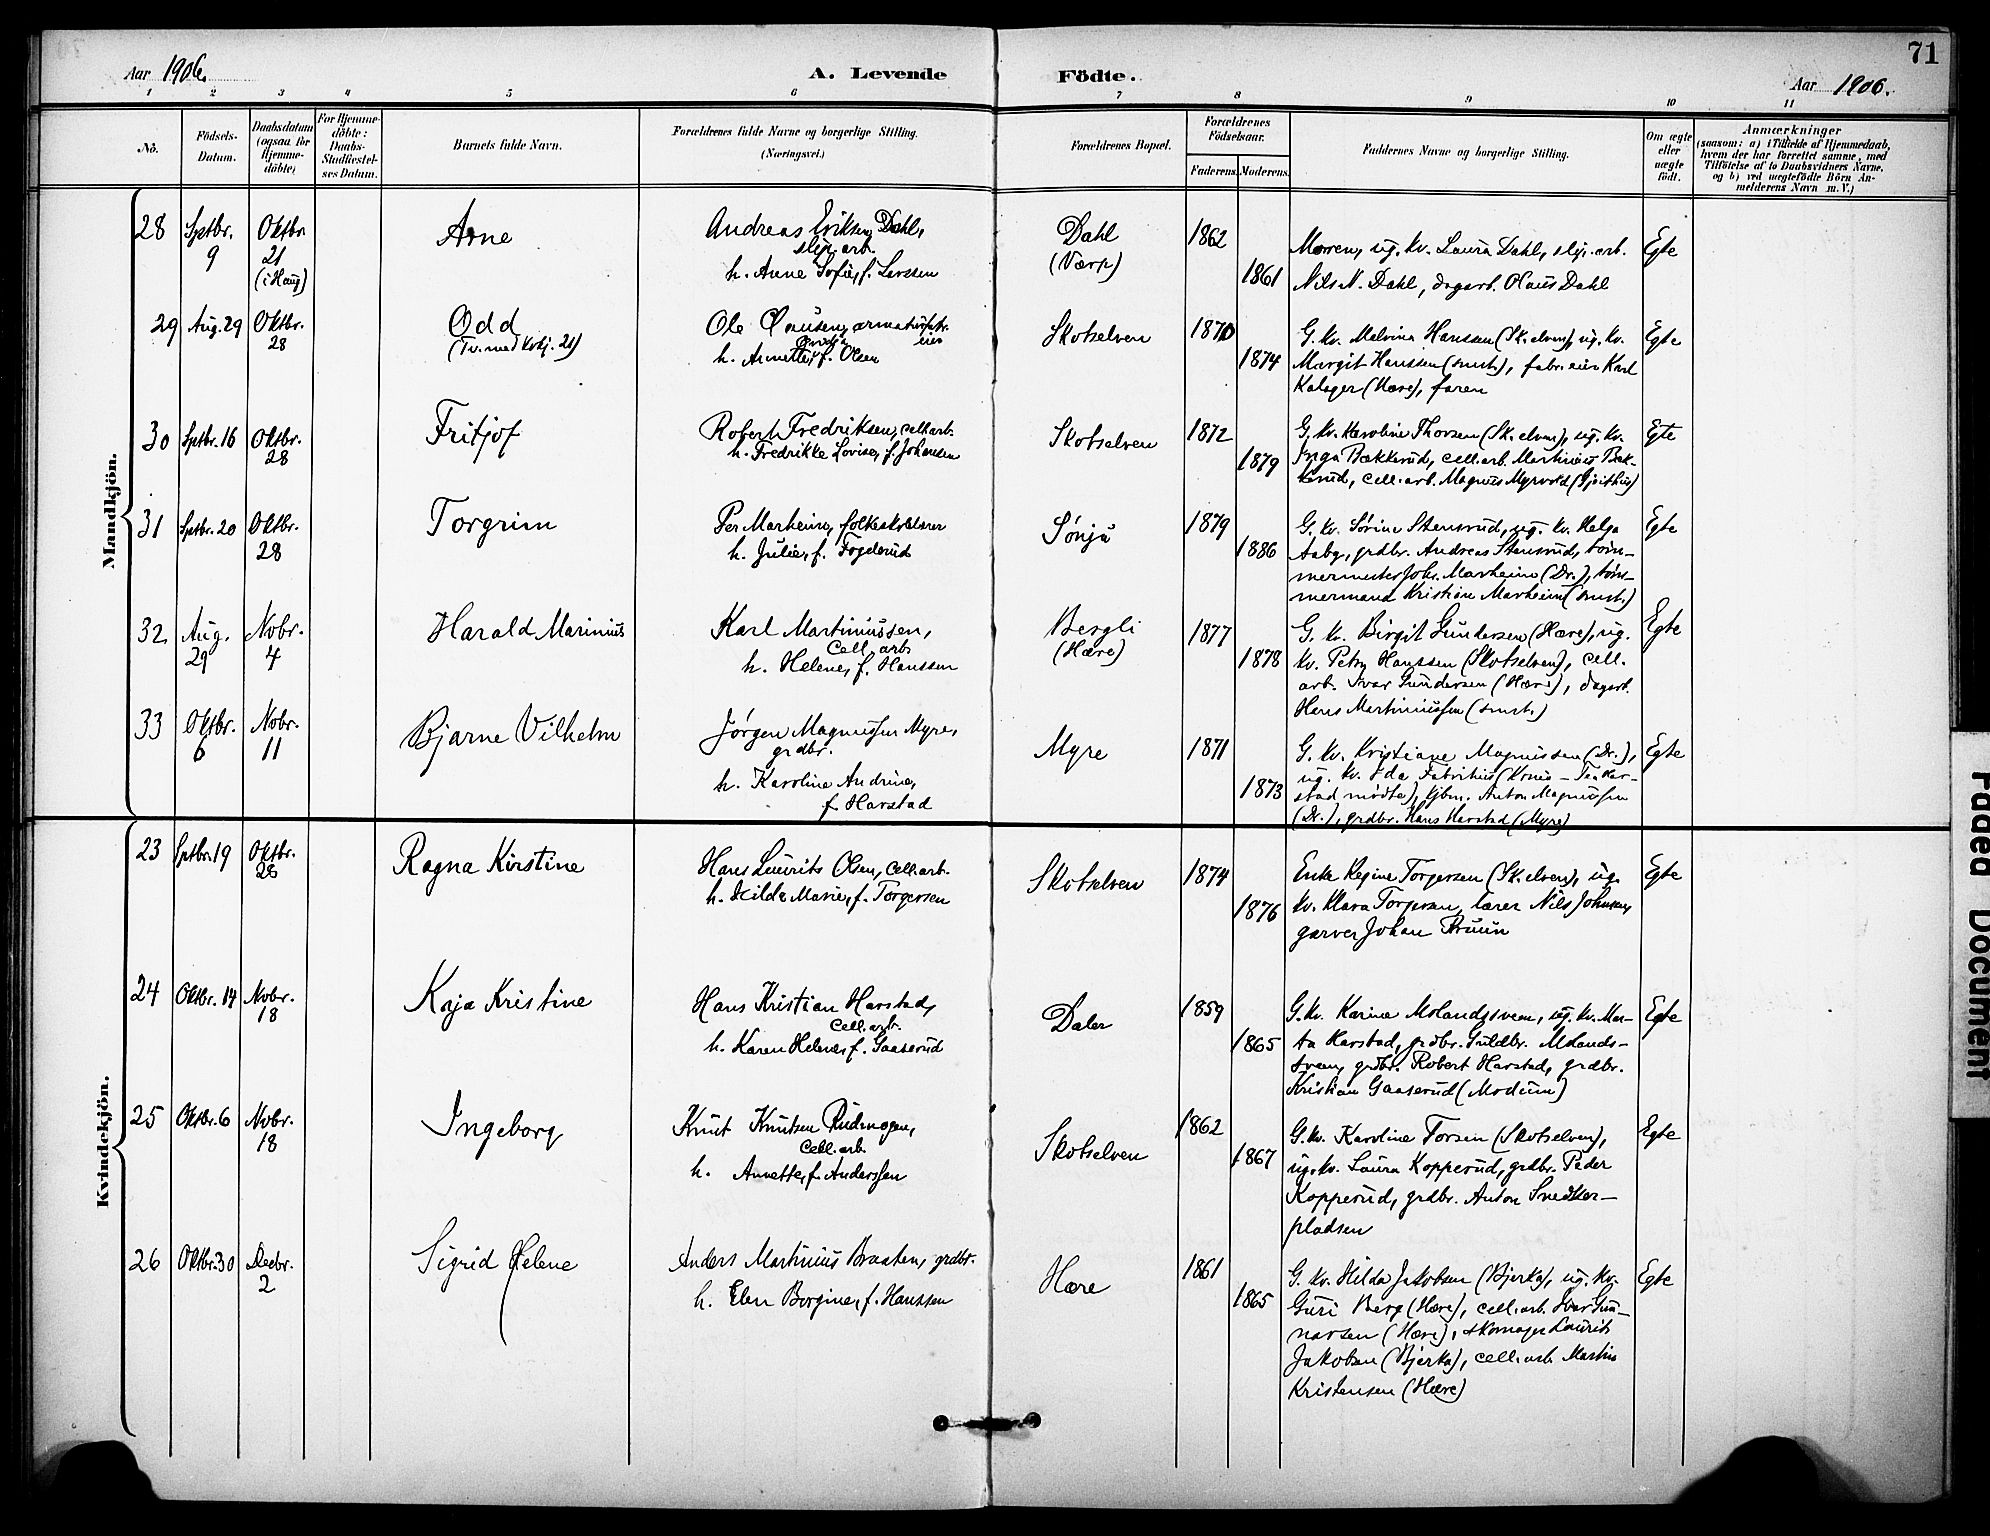 71
Aar 1906.
A. Levende
Födte.
Aar 1906.
1 2 3 4 5 6 7 8 9 10 11
No.
Födsels-
Datum.
Daabsdatum
(ogsaa for
Hjemme-
döbte)
For Hjemme-
döbte:
Daabs-
Stadfæstel-
ses Datum.
Barnets fulde Navn.
Forældrenes fulde Navne og borgerlige Stilling.
(Næringsvei.)
Forældrenes Bopæl.
Forældrenes
Födselsaar.
Faderens. Moderens.
Faddernes Navne og borgerlige Stilling.
Om ægte
eller
uægte
födt.
Anmærkninger
(saasom: a) i Tilfælde af Hjemmedaab,
hvem der har forrettet samme, med
Tilföielse af to Daabsvidners Navne,
og b) ved uægtefödte Börn An-
melderens Navn m. V.)
Mandkjön.
28
Sptbr.
9
Oktbr.
21
(i Haug)
Arne
Andreas Eriksen Dahl,
slip. arb.
h. Anne Sofie, f. Larssen
Dahl
(Værp)
1862
1861
Moren, ug. kv. Laura Dahl, slip. arb.
Nils N. Dahl, dagarb. Olaus Dahl
Egte
29
Aug. 29
Oktbr.
28
Odd
(Tv. med Kvkj. 21)
Ole
h. Annette f. Olsen
Skotselven
1870
1874
G. kv. Malvina Hanssen (Sk.elven), ug. kv.
Margit Hanssen (smst.), fabr. eier Karl
Kalager (Hære), faren
Egte
30
Sptbr. 16
Oktbr.
28
Fritjof
Robert Fredriksen, cell.arb.
h. Fredrikke Lovise, f. Johansen
Skotselven
1872
1879
G. kv. Karoline Thorsen (Sk.elven), ug. kv.
Inga Bækkerud, cell. arb. Martinius Bæk-
kerud, cell. arb. Magnus Myrvold (Gjeithus)
Egte
31
Sptbr. 20
Oktbr.
28
Torgrim
Per Marheim, folkeskolelærer
h. Julie, f. Fogderud
Sønju
1879
1886
G. kv. Sørine Stensrud, ug. kv. Helga
Aaby, grdbr. Andreas Stensrud, tøm-
mermester Johs. Marheim (Dr.), tøm-
mermand Kristian Marheim (smst.)
Egte
32
Aug.
29
Nobr.
4
Harald Marinius
Karl Martiniussen,
Cell. arb.
h. Helene, f. Hanssen
Bergli
(Hære)
1877
1878
G. kv. Birgit Gundersen (Hære), ug.
kv. Petry Hanssen (Skotselven), cell.
arb. Ivar Gundersen (Hære), dagarb.
Hans Martiniussen (smst.)
Egte
33
Oktbr.
6
Nobr.
11
Bjarne Vilhelm
Jørgen Magnussen Myre,
grdbr.
h. Karoline Andrine,
f. Harstad
Myre
1871
1873
G. kv. Kristiane Magnussen (Dr.),
ug. kv. Ida Fabritius
stad mødte), kjbm. Anton Magnussen
(Dr.), grdbr. Hans Harstad (Myre)
Egte
Kvindekjön.
23
Sptbr. 19
Oktbr.
28
Ragna Kirstine
Hans Laurits Olsen, Cell. arb.
h. Hilda Marie, f. Torgersen
Skotselven
1874
1876
Enke Regine Torgersen (Sk.elven), ug.
kv. Klara Torgersen, lærer Nils Johnsen,
garver Johan Bruun
Egte
24
Oktbr. 14
Nobr.
18
Kaja Kristine
Hans Kristian Harstad,
Cell. arb.
h. Karen Helene, f. Gaaserud
Daler
1859
1865
G. kv. Karine Molandsveen, ug. kv. Mar-
ta Harstad, grdbr. Guldbr. Molands-
sveen, grdbr. Robert Harstad, grdbr.
Kristian Gaaserud (Modum)
Egte
25
Oktbr. 6
Nobr.
18
Ingeborg
Knut Knutsen Rudmogen,
Cell. arb.
h. Annette, f. Anderssen
Skotselven
1862
1867
G. kv. Karoline Torsen (Skotselven),
ug. kv. Laura Kopperud, grdbr. Peder
Kopperud, grdbr. Anton Snedker-
pladsen
Egte
26
Oktbr. 30
Decbr.
2
Sigrid Helene
Anders Martinius Braaten, grdbr.
h. Elen Borgine, f. Hanssen
Hære
1861
1865
G. kv. Hilda Jakobsen (Bjerka), ug. kv.
Guri Berg (Hære), cell. arb. Ivar Gun-
narsen (Hære), skomager Laurits
Jakobsen (Bjerka), cell. arb. Martin
Kristensen (Hære)
Egte
Faded Document